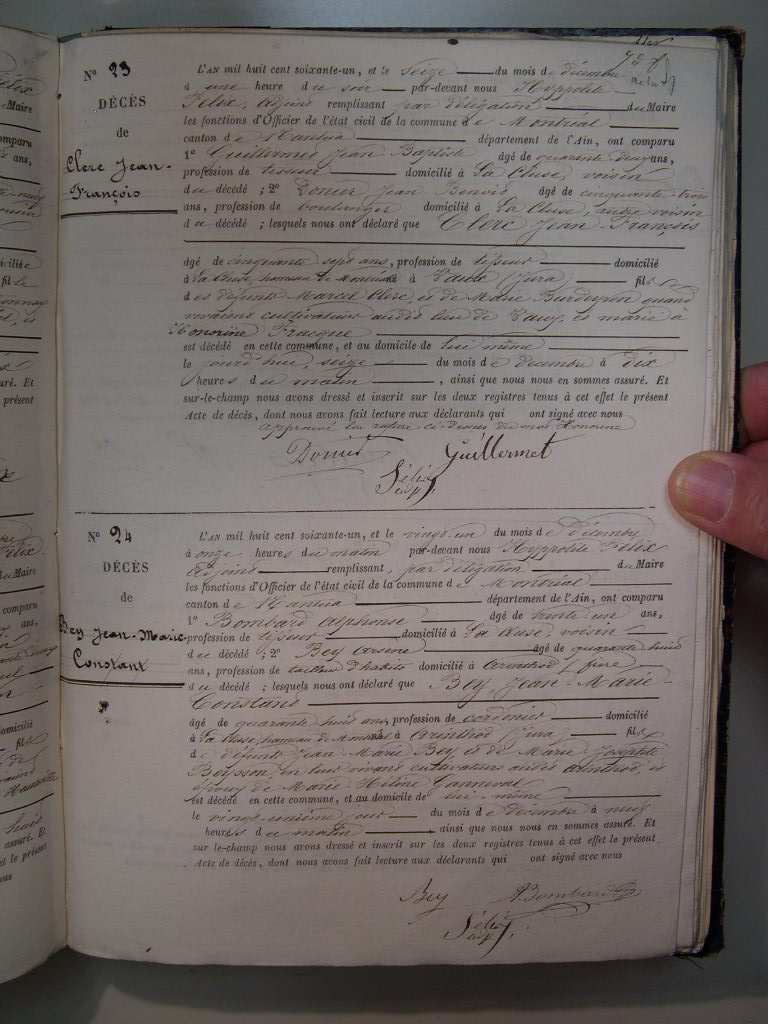 N° 23
DÉCÈS
de
Clerc Jean-
François
L'AN mil huit cent soixante-un, et le seize du mois de décembre
à une heure du soir par-devant nous Hyppolite
Félix, adjoint remplissant par délégation du Maire
les fonctions d'Officier de l'état civil de la commune de Montréal
canton de Nantua département de l'Ain, ont comparu
1° Guillermet Jean Baptiste âgé de quarante ans,
profession de domicilié à La Cluse, voisin
du décédé ; 2° Jean Benoit âgé de cinquante-trois
ans, profession de boulanger domicilié à La Cluse, autre voisin
du décédé ; lesquels nous ont déclaré que Clerc Jean-François
âgé de cinquante sept ans, profession de tisseur domicilié
à La Cluse, hameau de Montréal né à (Jura) fils
des défunts Marcel Clerc, et de Marie quand
vivaient cultivateurs audit lieu de et marié à
Honorine
est décédé en cette commune, et au domicile de lui même
le jourd'hui, seize du mois de décembre à dix
heures du matin , ainsi que nous nous en sommes assuré. Et
sur-le-champ nous avons dressé et inscrit sur les deux registres tenus à cet effet le présent
Acte de décès, dont nous avons fait lecture aux déclarants qui ont signé avec nous
approuvé la rature ci-dessus du mot Honorine
Guillermet
Félix
adj.
N° 24
DÉCÈS
de
Bey Jean-Marie-
Constant
L'AN mil huit cent soixante-un, et le vingt un du mois de décembre
à onze heures du matin par-devant nous Hyppolite Félix
adjoint remplissant, par délégation du Maire
les fonctions d'Officier de l'état civil de la commune de Montréal
canton de Nantua département de l'Ain, ont comparu
1° Bombard Alphonse âgé de trente un ans,
profession de tisseur domicilié à La Cluse, voisin
du décédé ; 2° Bey Arsène âgé de quarante huit
ans, profession de tailleur d'habits domicilié à Arinthod, frère
du décédé ; lesquels nous ont déclaré que Bey Jean-Marie-
Constant
âgé de quarante huit ans, profession de cordonier domicilié
à La Cluse, hameau de Montréal né à Arinthod (Jura) fils
de défunts Jean Marie Bey, et de Marie Josephte
en leur vivant cultivateurs audit Arinthod, et
époux de Marie Hélène Ganneval
est décédé en cette commune, et au domicile de lui-même
le vingt-unième jour du mois de décembre à neuf
heures du matin ainsi que nous nous en sommes assuré. Et
sur-le-champ nous avons dressé et inscrit sur les deux registres tenus à cet effet le présent
Acte de décès, dont nous avons fait lecture aux déclarants qui ont signé avec nous
Bey ABombard
Félix
adj.